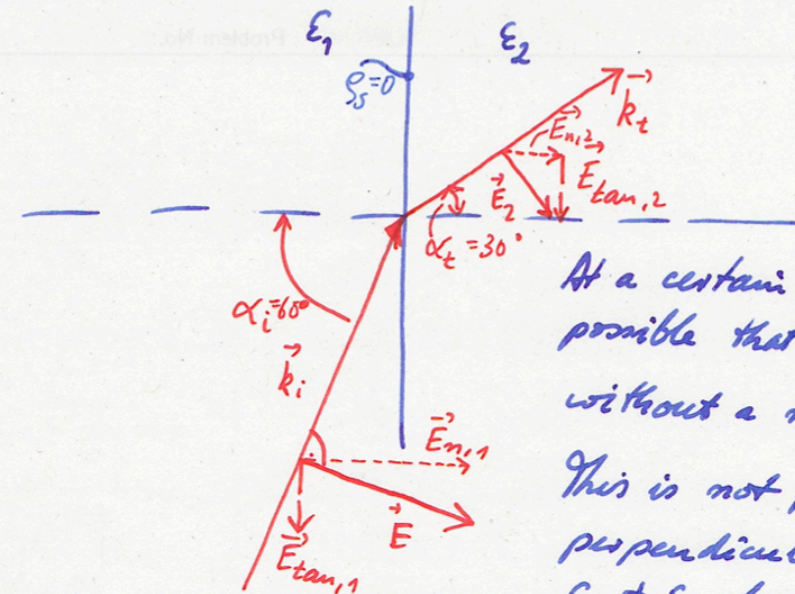 Problem No.:
ε₁
ε₂
ρₛ=0
k⃗ₜ
E⃗ₙ,₂
E⃗ₜₐₙ,₂
E⃗₂
αₜ=30°
αᵢ=60°
k⃗ᵢ
E⃗ₙ,₁
E⃗
E⃗ₜₐₙ,₁
At a certain
possible that
without a
This is not
perpendicu